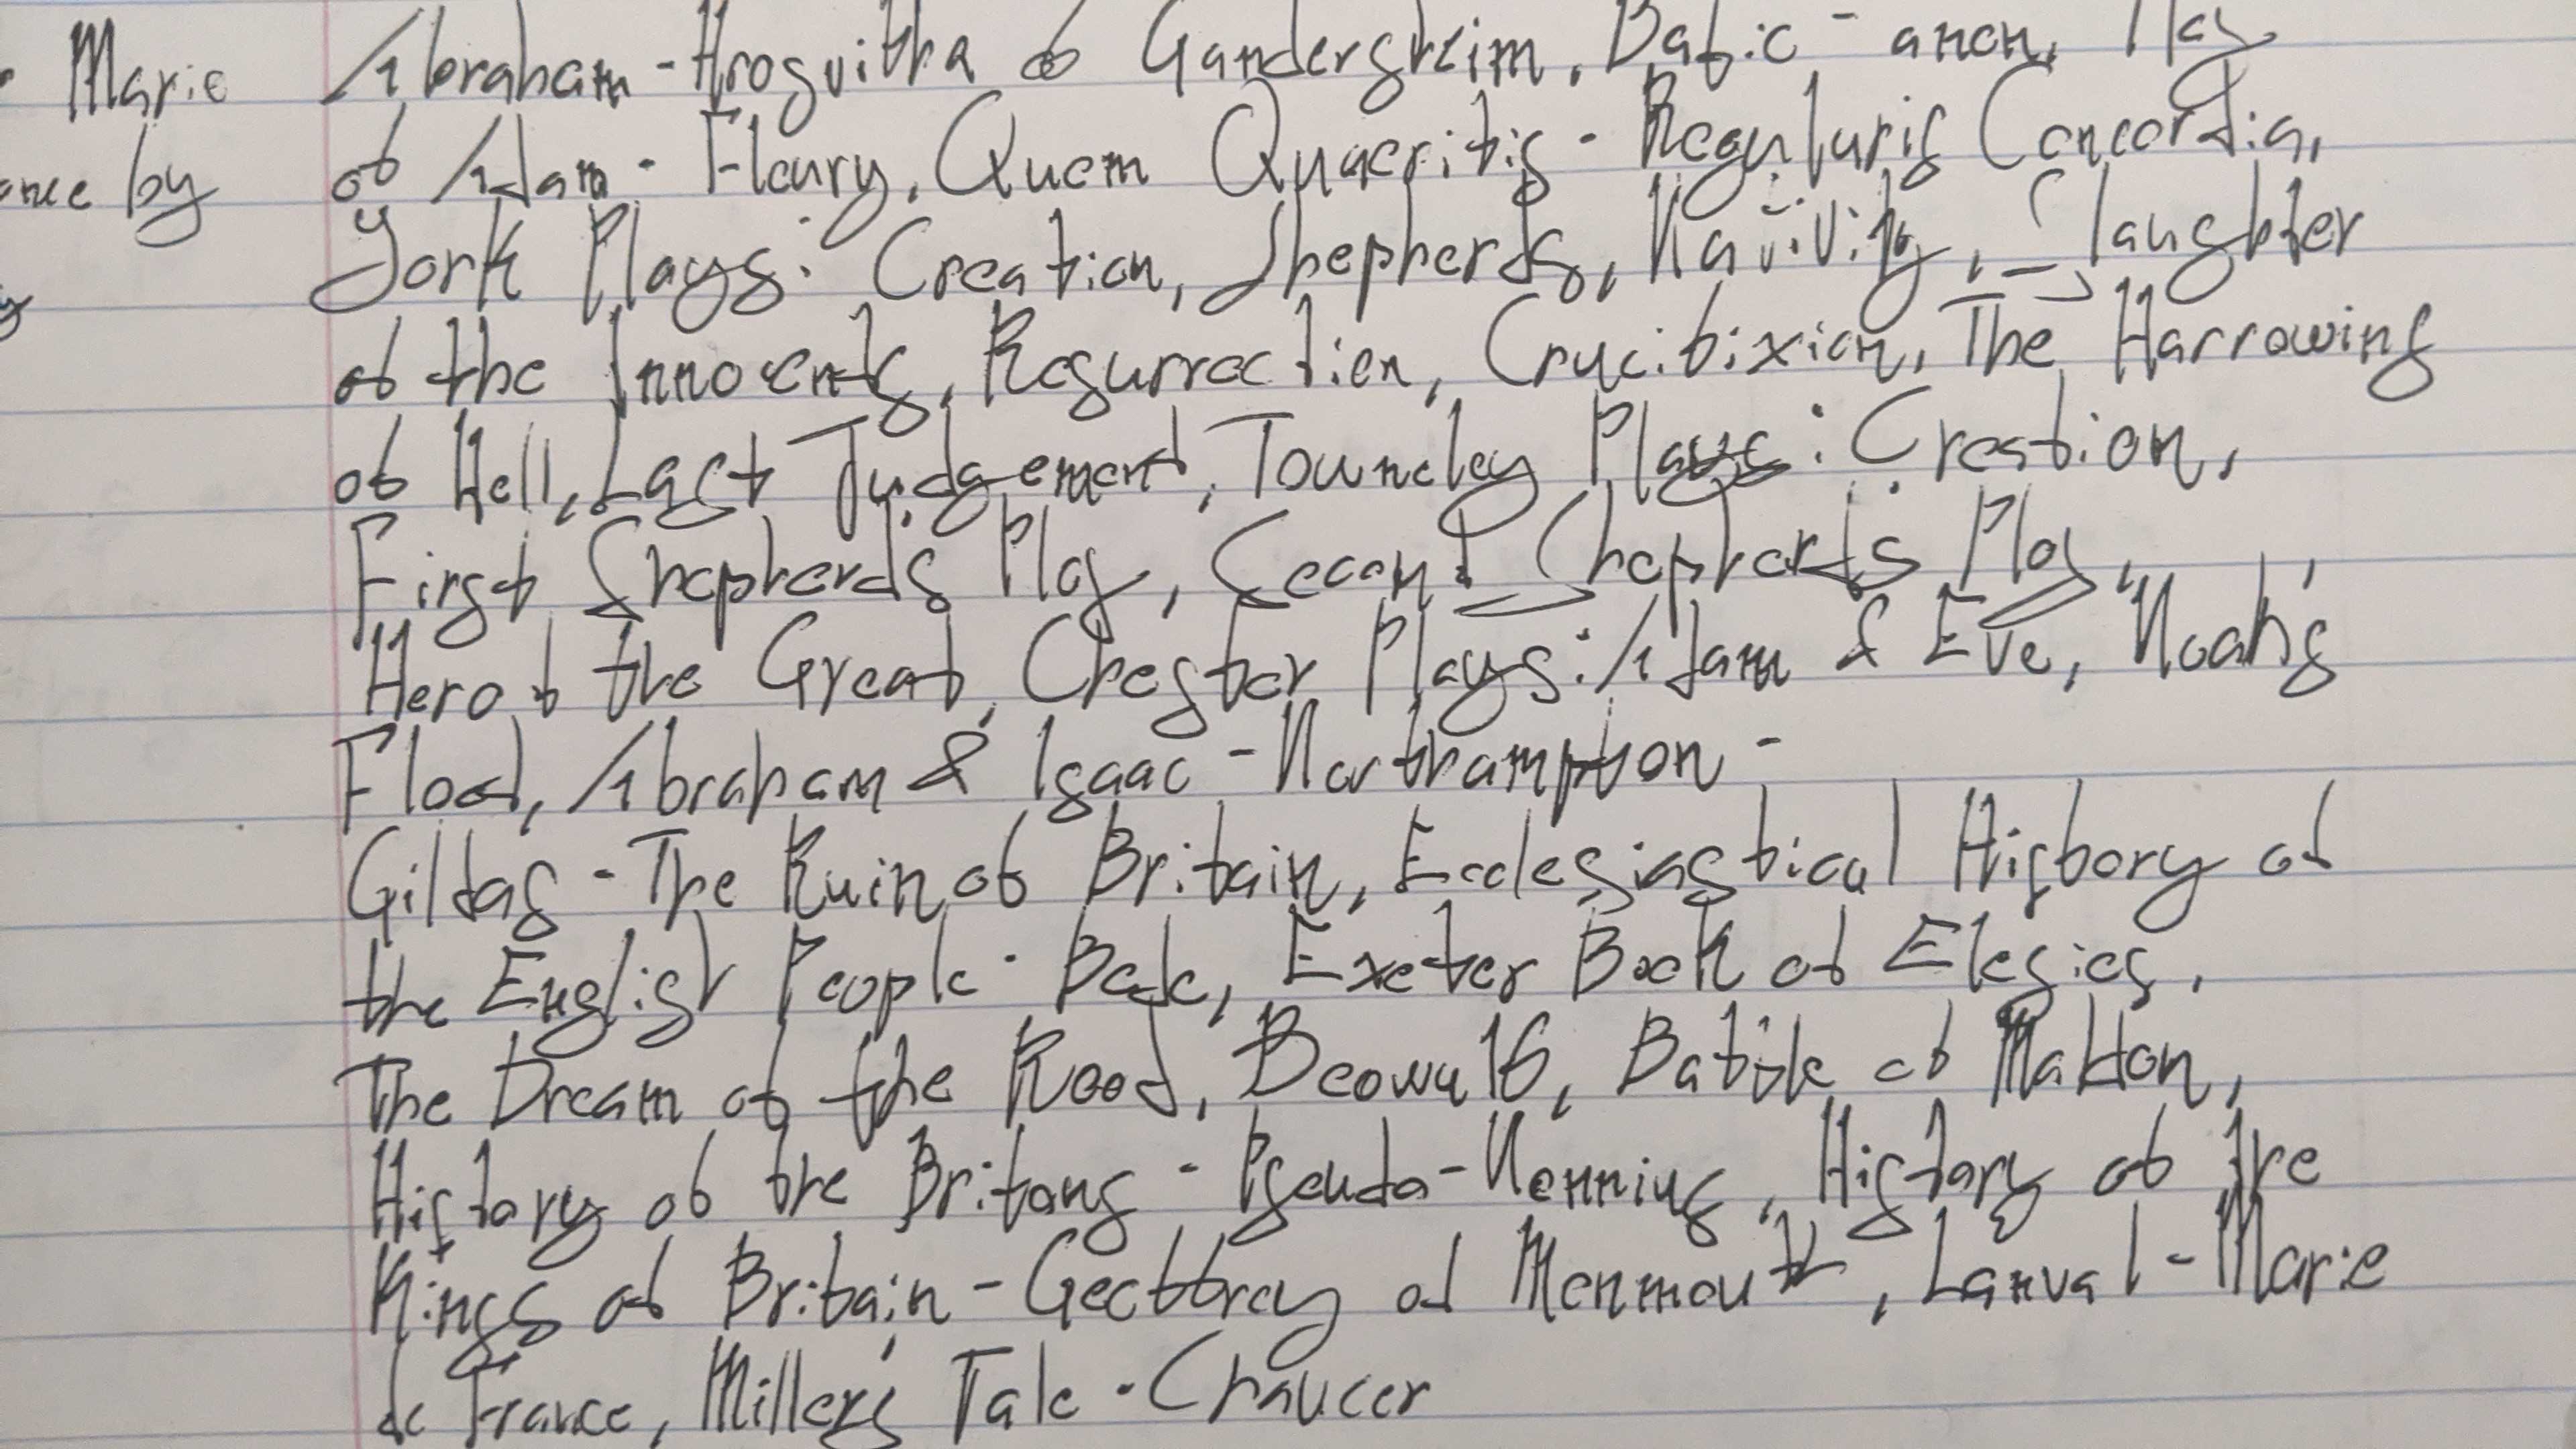 Marie
Abraham - Hrosvitha of Gandersheim, Babio - anon, Play
ance by
of Adam - Fleury, Quem Quaeritis - Regularis Concordia,
York Plays: Creation, Shepherds, Nativity, Slaughter
of the Innocents, Resurrection, Crucifixion, The Harrowing
of Hell, Last Judgement, Towneley Plays: Creation,
First Shepherd's Play, Second Shepherd's Play,
Herod the Great, Chester Plays: Adam & Eve, Noah's
Flood, Abraham & Isaac - Northampton -
Gildas - The Ruin of Britain, Ecclesiastical History of
the English People - Bede, Exeter Book of Elegies,
The Dream of the Rood, Beowulf, Battle of Maldon,
History of the Britons - Pseudo-Nennius, History of the
Kings of Britain - Geoffrey of Monmouth, Lanval - Marie
de France, Miller's Tale - Chaucer